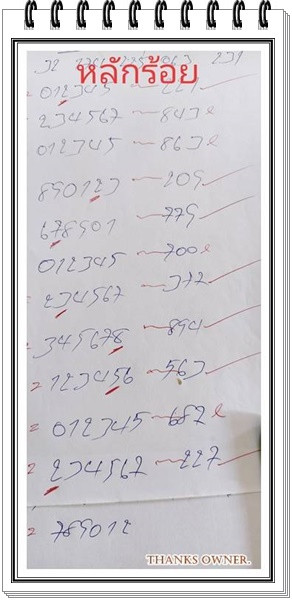 231
หลักร้อย
= 012345 ~
234567 ~ 843 l
012345 ~ 863 l
890123 ~ 209
678901 ~ 779
012345 ~ 700 l
= 234567 ~ 377
= 345678 ~ 894
= 123456 ~ 563
= 012345 ~ 682 l
= 234567 ~ 227
= 789012
THANKS OWNER.